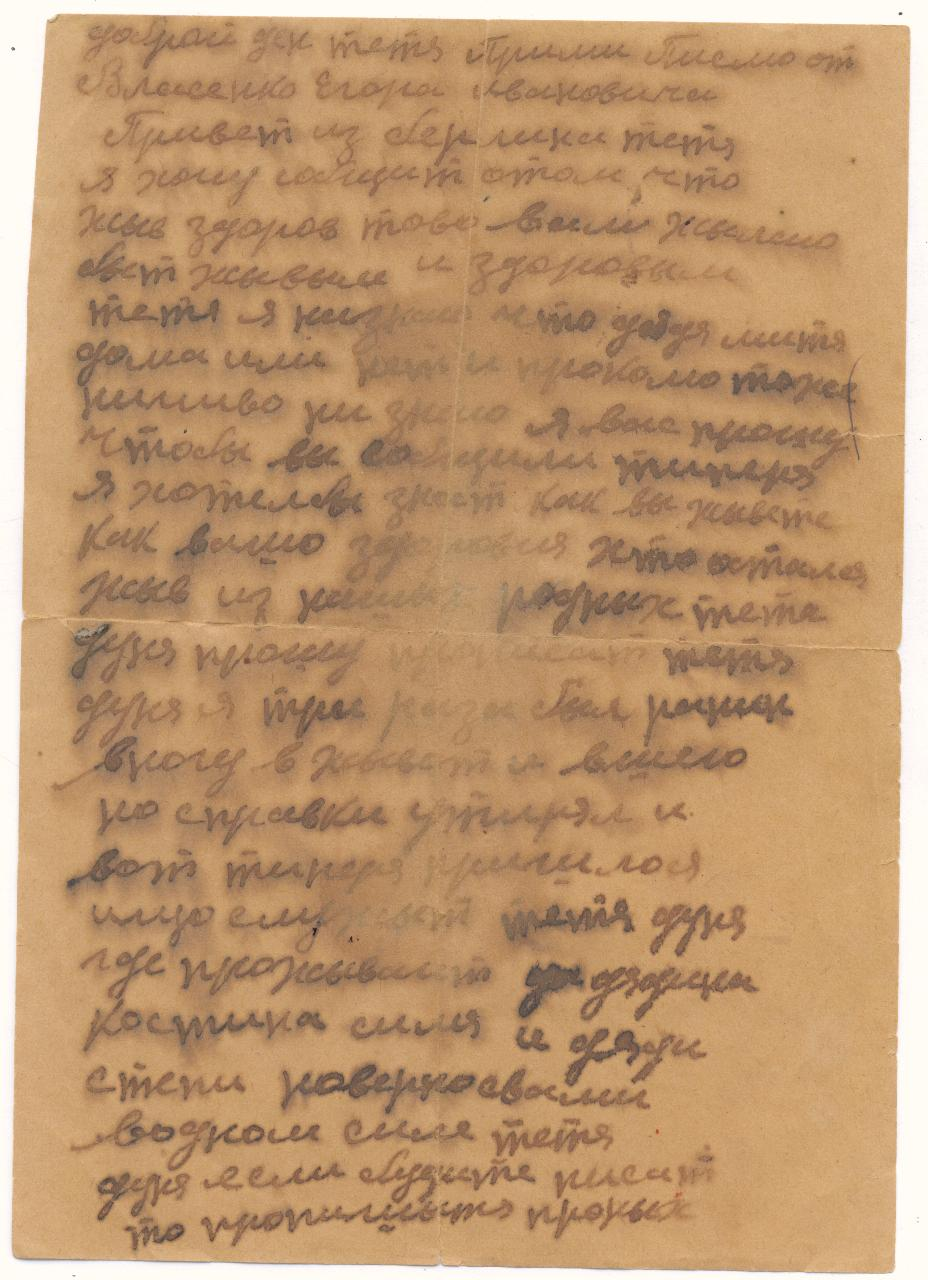 доброй ден тетя Прими Писмо от
Власенко Егора ивановича
Привет из берлина тетя
я хочу собщит отом что
жыв здоров тово вам жылаю
быт жывым и здоровым
тетя я низнаю что дядя митя
дома или нет и проколю тоже
ничиво ни знаю я вас прошу
чтобы вы собщили типеря
я хотелбы знат как вы жывете
как вашо здаровия хто остался
жыв из наших родных тетя
дуня прошу прописат тетя
дуня я три раза был ранин
вногу в жывот и вшею
но справки утирял и
вот типеря пришлося
ищо служыт тетя дуня
где проживаит дядина
костина симя и дяди
степи наверносвами
водном силе тетя
дуня если будите писат
то пропишытя проных